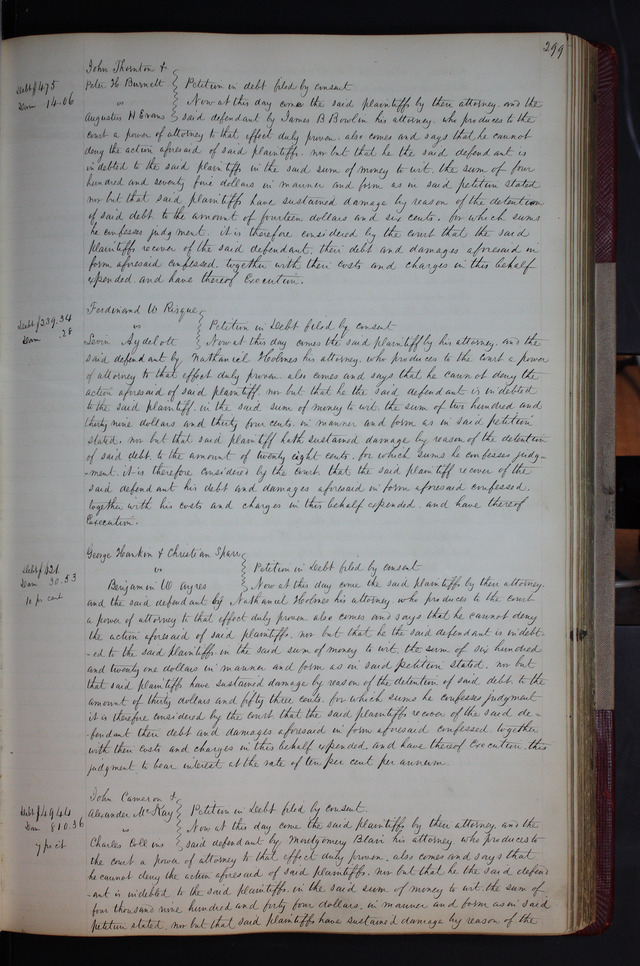 299
John Thornton &
Debt $475 Peter H Burnett Petition in debt filed by consent
Dam 14.06 vs Now at this day come the said plaintiffs by their attorney. and the
Augustus H Evans said defendant by James B Bowlin his attorney. who produces to the
court a power of attorney to that effect duly proven. also comes and says that he cannot
deny the action aforesaid of said plaintiffs. nor but that he the said defendant is
indebted to the said plaintiffs in the said sum of money to wit. the sum of four
hundred and seventy five dollars in manner and form as in said petition stated
nor but that said plaintiffs have sustained damage by reason of the detention
of said debt to the amount of fourteen dollars and six cents. for which sums
he confesses judgment. it is therefore considered by the court that the said
plaintiffs recover of the said defendant, their debt and damages aforesaid in
form aforesaid confessed. together with their costs and charges in this behalf
expended and have thereof Execution.
Ferdinand W Risque
Debt $239.34 vs Petition in Debt filed by consent
Dam .28 Levin Aydelott Now at this day comes the said plaintiff by his attorney. and the
said defendant by Nathaniel Holmes his attorney. who produces to the Court a power
of attorney to that effect duly proven. also comes and says that he cannot deny the
action aforesaid of said plaintiff. nor but that he the said defendant is indebted
to the said plaintiff. in the said sum of money to wit. the sum of two hundred and
thirty nine dollars and thirty four cents. in manner and form as in said petition
stated. nor but that said plaintiff hath sustained damage by reason of the detention
of said debt. to the amount of twenty eight cents. for which sums he confesses judg-
-ment. it is therefore considered by the court. that the said plaintiff recover of the
said defendant his debt and damages aforesaid in form aforesaid confessed.
together with his costs and charges in this behalf expended. and have thereof
Execution.
George Harkon & Christian Sparr
Debt $621 vs Petition in Debt filed by consent
Dam 30.53 Benjamin W Ayres Now at this day come the said plaintiffs by their attorney.
10 pr cent and the said defendant by Nathaniel Holmes his attorney. who produces to the court
a power of attorney to that effect duly proven. also comes and says that he cannot deny
the action aforesaid of said plaintiffs. nor but that he the said defendant is indebt-
-ed to the said plaintiffs in the said sum of money to wit. the sum of six hundred
and twenty one dollars in manner and form as in said petition stated. nor but
that said plaintiffs have sustained damage by reason of the detention of said debt. to the
amount of thirty dollars and fifty three cents. for which sums he confesses judgment
it is therefore considered by the court that the said plaintiffs recover of the said de-
-fendant their debt and damages aforesaid in form aforesaid confessed. together
with their costs and charges in this behalf expended. and have thereof Execution. this
judgment to bear interest at the rate of ten per cent per annum.
John Cameron &
Debt $4944 Alexander McKay Petition in Debt filed by consent.
Dam 810.36 vs Now at this day come the said plaintiffs by their attorney. and the
7 pr ct Charles Collins said defendant by Montgomery Blair his attorney who produces to
the court a power of attorney to that effect duly proven. also comes and says that
he cannot deny the action aforesaid of said plaintiffs. nor but that he the said defend
-ant is indebted to the said plaintiffs. in the said sum of money to wit. the sum of
four thousand nine hundred and forty four dollars. in manner and form as in said
petition stated. nor but that said plaintiffs have sustained damage by reason of the